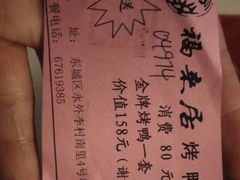 福来居烤鸭
04914
消费80元
送
金牌烤鸭一套
价值158元(谢
址:东城区永外李村南里4号
餐电话:67619385